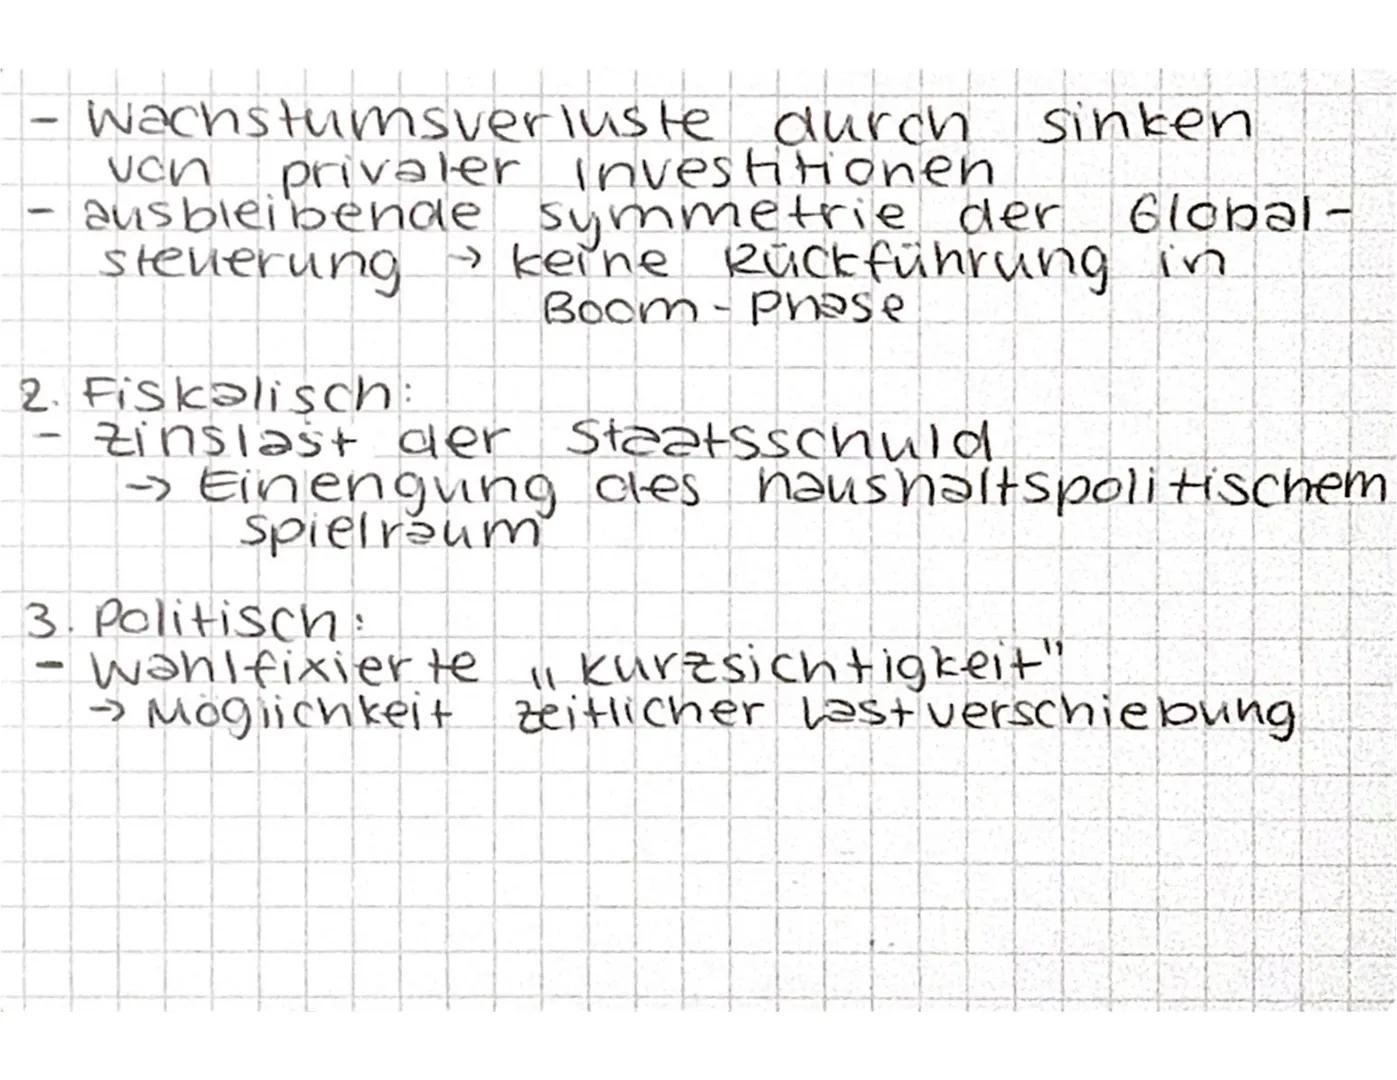 - Wachstumsverluste durch sinken
von privater Investitionen
- ausbleibende Symmetrie der Global-
steuerung → keine Rückführung in
Boom-Phase
2. Fiskalisch:
- Zinslast der Staatsschuld
→ Einengung des haushaltspolitischem
Spielraum
3. Politisch:
- Wahlfixierte „Kurzsichtigkeit"
→ Möglichkeit zeitlicher Lastverschiebung